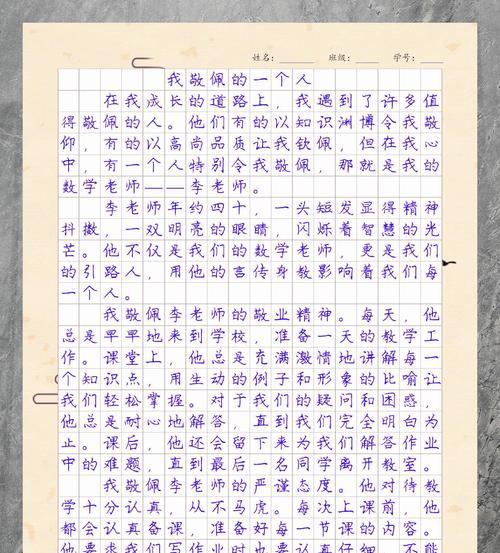 姓名：______ 班级：______ 学号：______
我敬佩的一个人
在我成长的道路上，我遇到了许多值
得敬佩的人。他们有的以知识渊博令我敬
仰，有的以高尚品质让我钦佩，但在我心
中，有一个人特别令我敬佩，那就是我的
数学老师——李老师。
李老师年约四十，一头短发显得精神
抖擞，一双明亮的眼睛，闪烁着智慧的光
芒。他不仅是我们的数学老师，更是我们
的引路人，用他的言传身教影响着我们每
一个人。
我敬佩李老师的敬业精神。每天，他
总是早早地来到学校，准备一天的教学工
作。课堂上，他总是充满激情地讲解每一
个知识点，用生动的例子和形象的比喻让
我们轻松掌握。对于我们的疑问和困惑，
他总是耐心地解答，直到我们完全明白为
止。课后，他还会留下来为我们解答作业
中的难题，直到最后一名同学离开教室。
我敬佩李老师的严谨态度。他对待教
学十分认真，从不马虎。每次上课前，他
都会认真备课，准备好每一节课的内容。
他要求我们写作业时也要认真仔细，不能